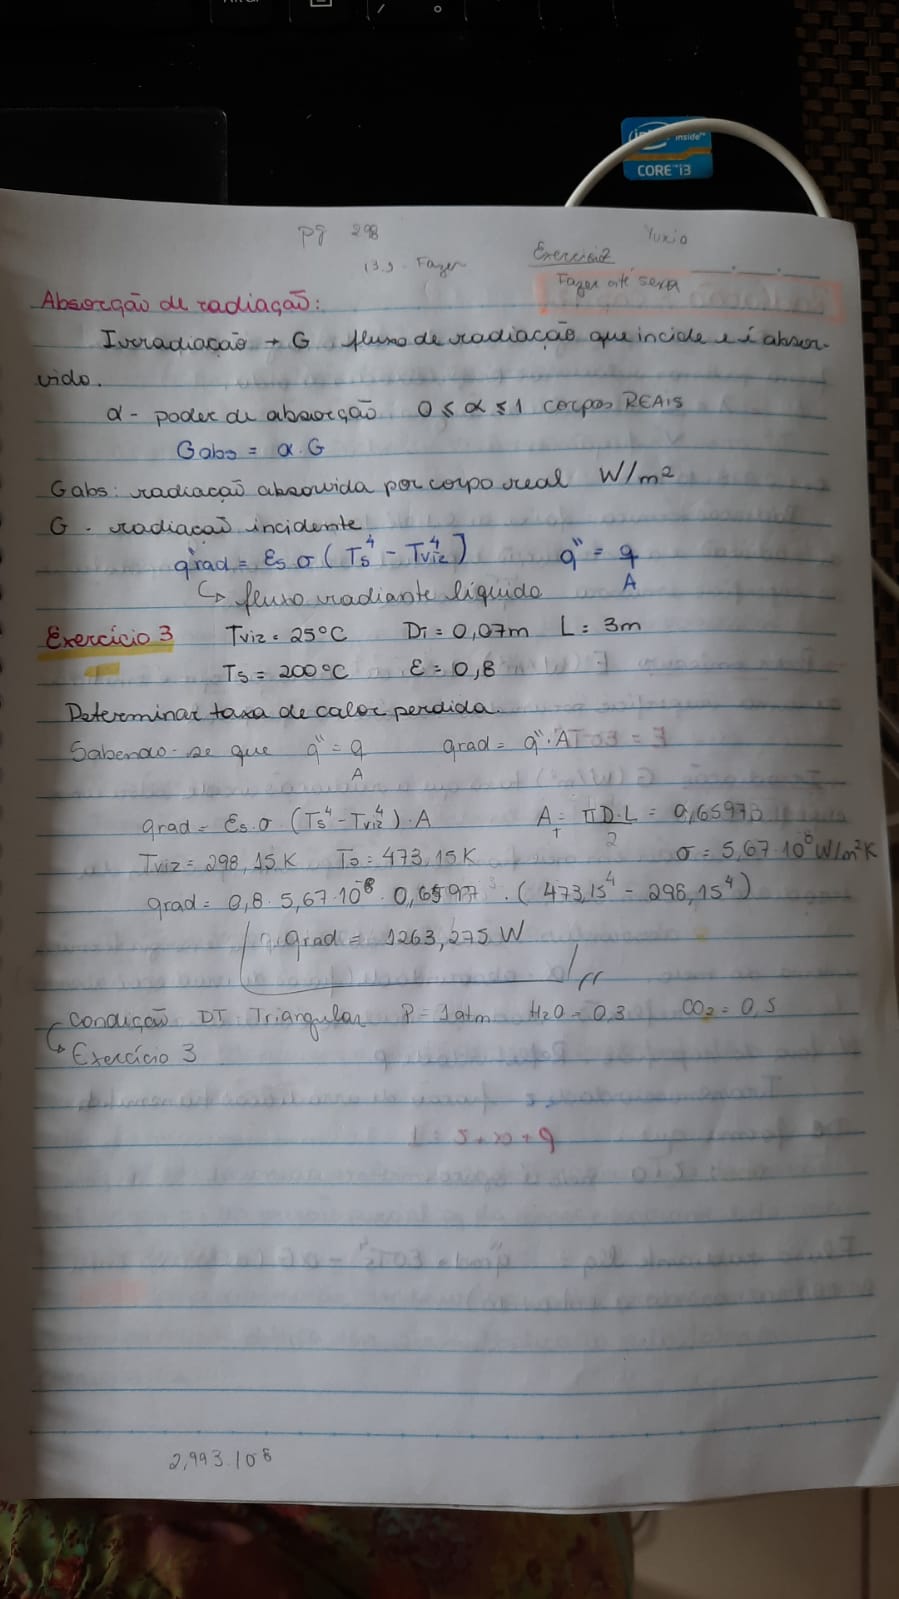 intel inside™
CORE™ i3
pg 298
13.9 - Fazer
Exercício2
Fazer até sexta
Absorção de radiação:
Irradiação → G fluxo de radiação que incide e é absor-
vido.
α - poder de absorção 0 ≤ α ≤ 1 corpos REAIS
Gabs = α . G
Gabs: radiação absorvida por corpo real W/m²
G - radiação incidente
q"rad = εs σ (Ts⁴ - Tviz⁴) q" = q/A
↳ fluxo radiante líquido
Exercício 3 Tviz = 25°C Di = 0,07m L = 3m
Ts = 200°C ε = 0,8
Determinar taxa de calor perdida.
Sabendo-se que q" = q/A qrad = q" . A
qrad = εs . σ (Ts⁴ - Tviz⁴) . A A = πD.L = 0,65973
Tviz = 298,15K Ts = 473,15K σ = 5,67 . 10⁻⁸ W/m²K
qrad = 0,8 . 5,67 . 10⁻⁸ . 0,6597 . (473,15⁴ - 298,15⁴)
qrad = 1263,275 W
Condição DT: Triangular P = 1 atm H2O = 0,3 CO2 = 0,5
↳ Exercício 3
2,993.10⁻⁸